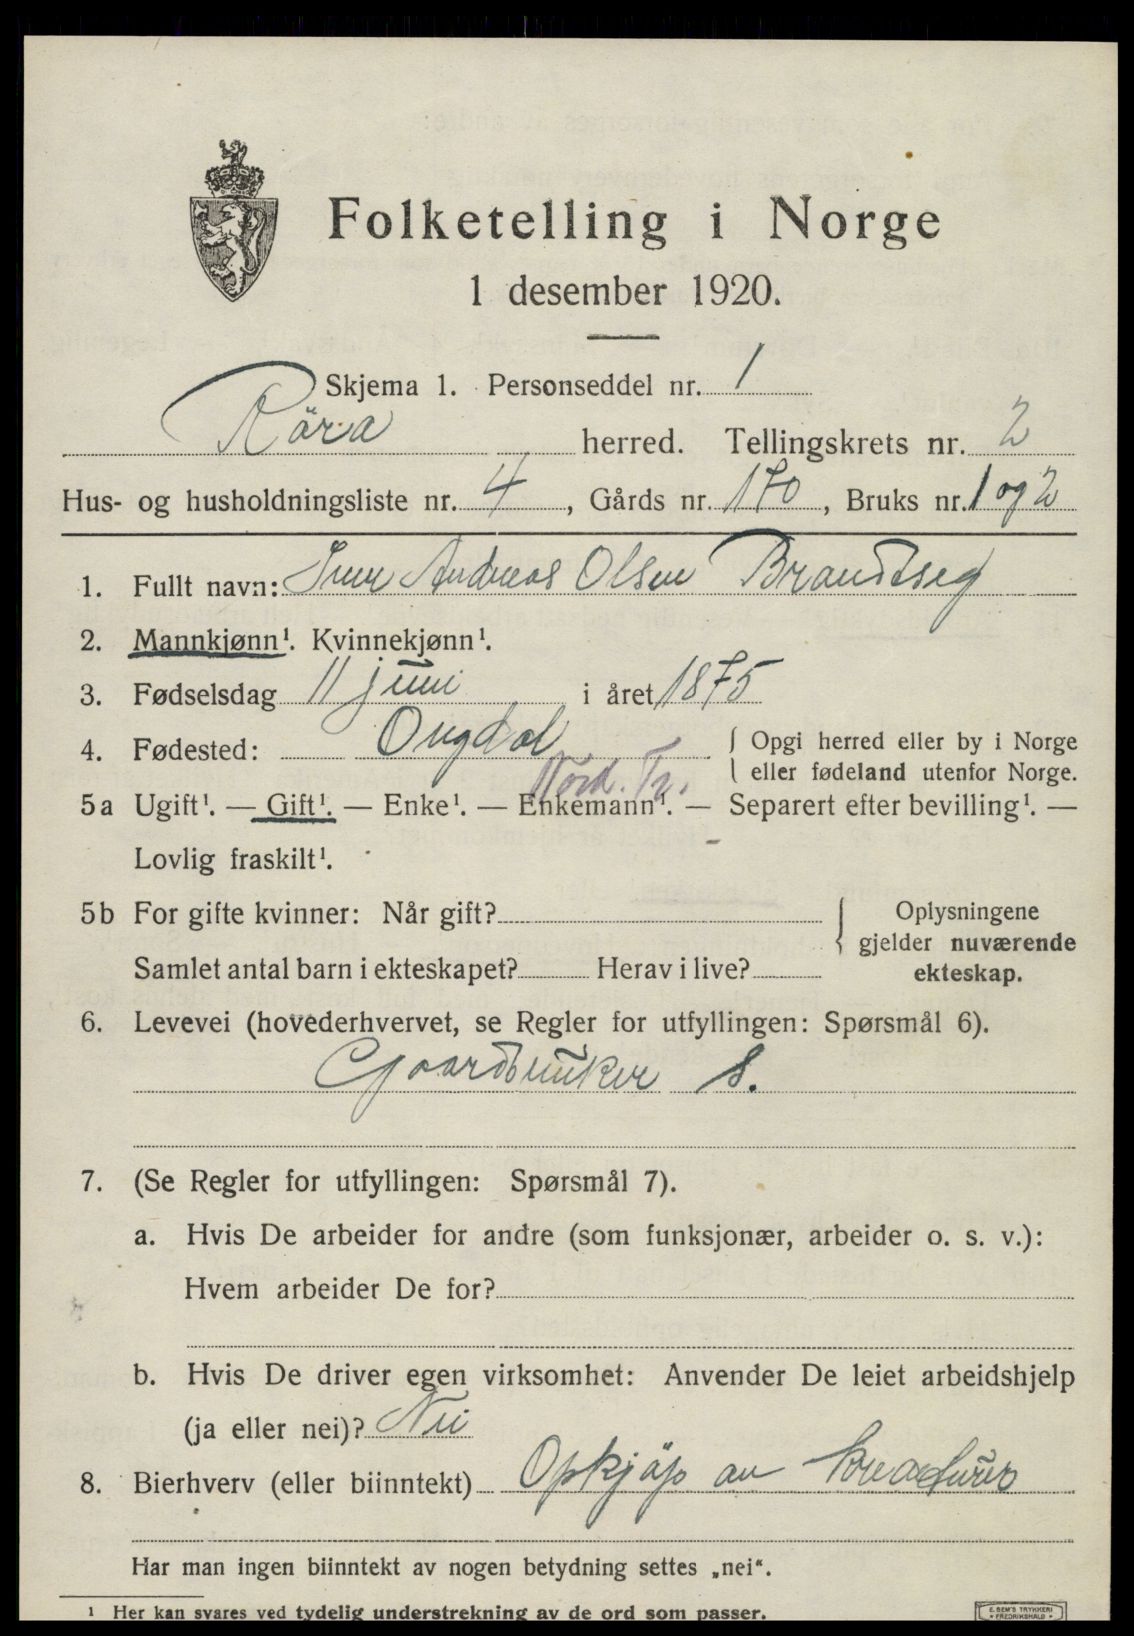 Folketelling i Norge
1 desember 1920.
Skjema 1. Personseddel nr. 1
Röra herred. Tellingskrets nr. 2
Hus- og husholdningsliste nr. 4, Gårds nr. 170, Bruks nr. 1 og 2
1. Fullt navn: Iver Andreas Olsen Brandtseg
2. Mannkjønn¹. Kvinnekjønn¹.
3. Fødselsdag 11 juni i året 1875
4. Fødested: Ongdal { Opgi herred eller by i Norge
eller fødeland utenfor Norge.
Nord. Tr.
5a Ugift¹. — Gift¹. — Enke¹. — Enkemann¹. — Separert efter bevilling¹. —
Lovlig fraskilt¹.
5b For gifte kvinner: Når gift? { Oplysningene
gjelder nuværende
Samlet antal barn i ekteskapet? Herav i live? ekteskap.
6. Levevei (hovederhvervet, se Regler for utfyllingen: Spørsmål 6).
Gaardbruker S.
7. (Se Regler for utfyllingen: Spørsmål 7).
a. Hvis De arbeider for andre (som funksjonær, arbeider o. s. v.):
Hvem arbeider De for?
b. Hvis De driver egen virksomhet: Anvender De leiet arbeidshjelp
(ja eller nei)? Nei
8. Bierhverv (eller biinntekt) Opkjöp av kreaturer
Har man ingen biinntekt av nogen betydning settes „nei“.
¹ Her kan svares ved tydelig understrekning av de ord som passer.
E. SEM'S TRYKKERI
FREDRIKSHALD